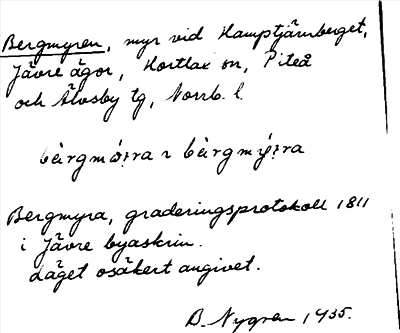 Bergmyren, myr vid Hamptjärnberget,
Jävre ägor, Hortlax sn, Piteå
och Älvsby tg, Norrb. l.
bèrgmǿ:ra ~ bèrgmý:ra
Bergmyra, graderingsprotokoll 1811
i Jävre byaskrin.
Läget osäkert angivet.
B. Nygren 1935.